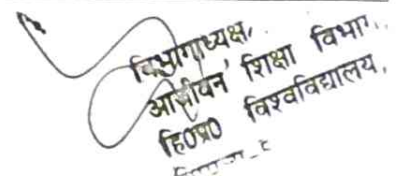 विभागाध्यक्ष,
आजीवन शिक्षा विभाग,
हि0प्र0 विश्वविद्यालय,